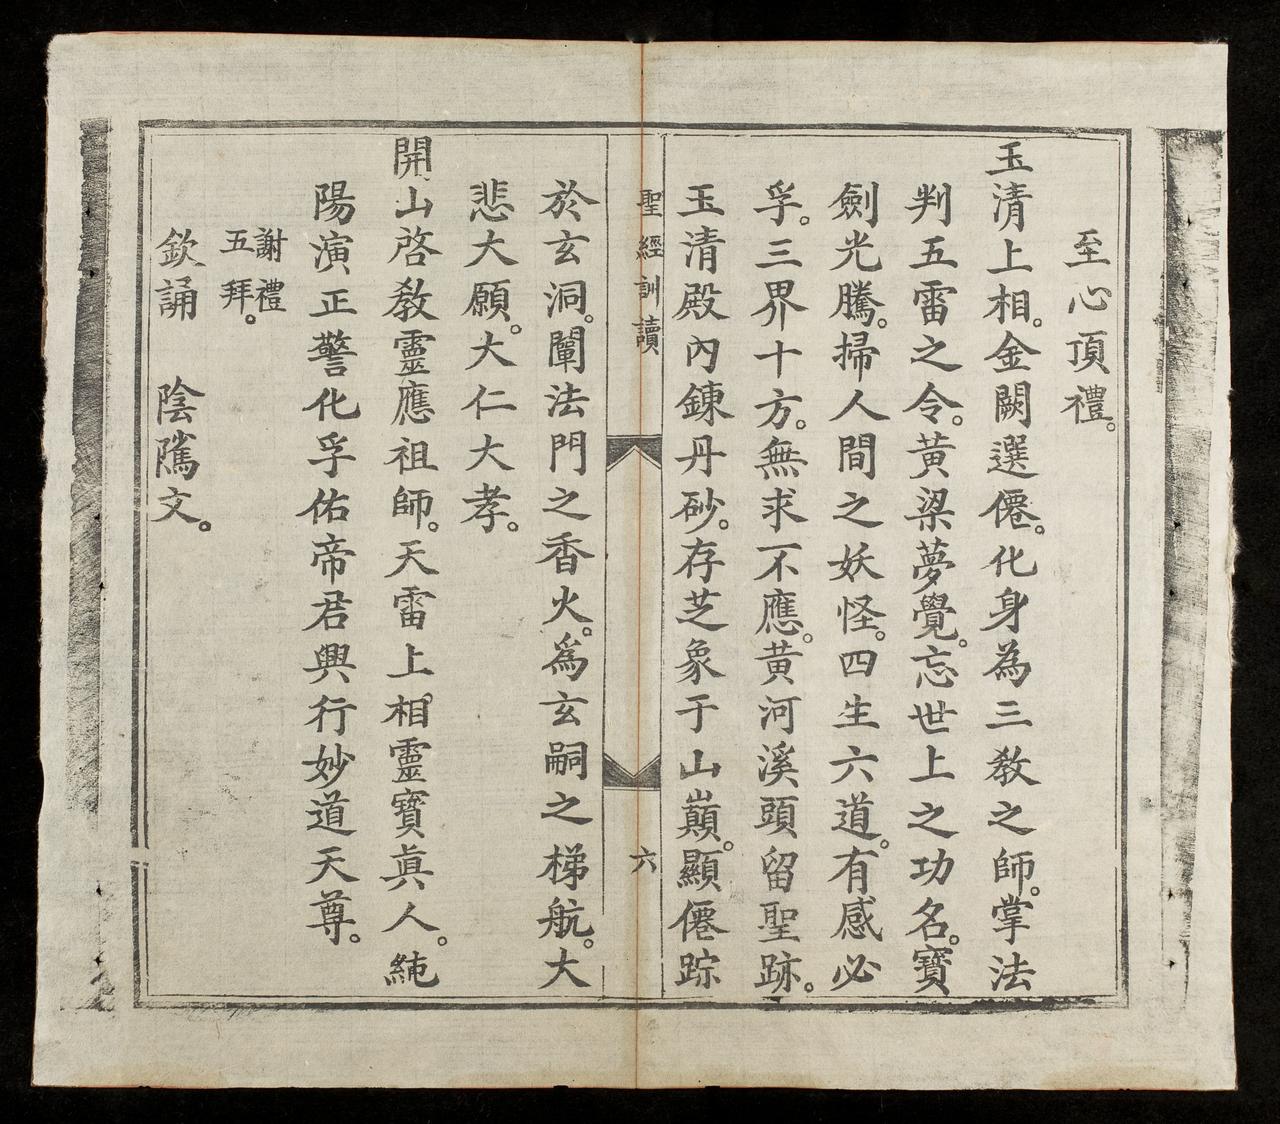 至心頂禮。
玉清上相。金闕選僊。化身為三教之師。掌法
判五雷之令。黃粱夢覺。忘世上之功名。寶
劍光騰。掃人間之妖怪。四生六道。有感必
孚。三界十方。無求不應。黃河溪頭留聖跡。
玉清殿內鍊丹砂。存芝象于山巔。顯僊踪
聖經訓讀
六
於玄洞。闡法門之香火。爲玄嗣之梯航。大
悲大願。大仁大孝。
開山啓教靈應祖師。天雷上相。靈寶眞人。純
陽演正警化孚佑帝君興行妙道天尊。
謝禮
五拜。
欽誦 陰隲文。